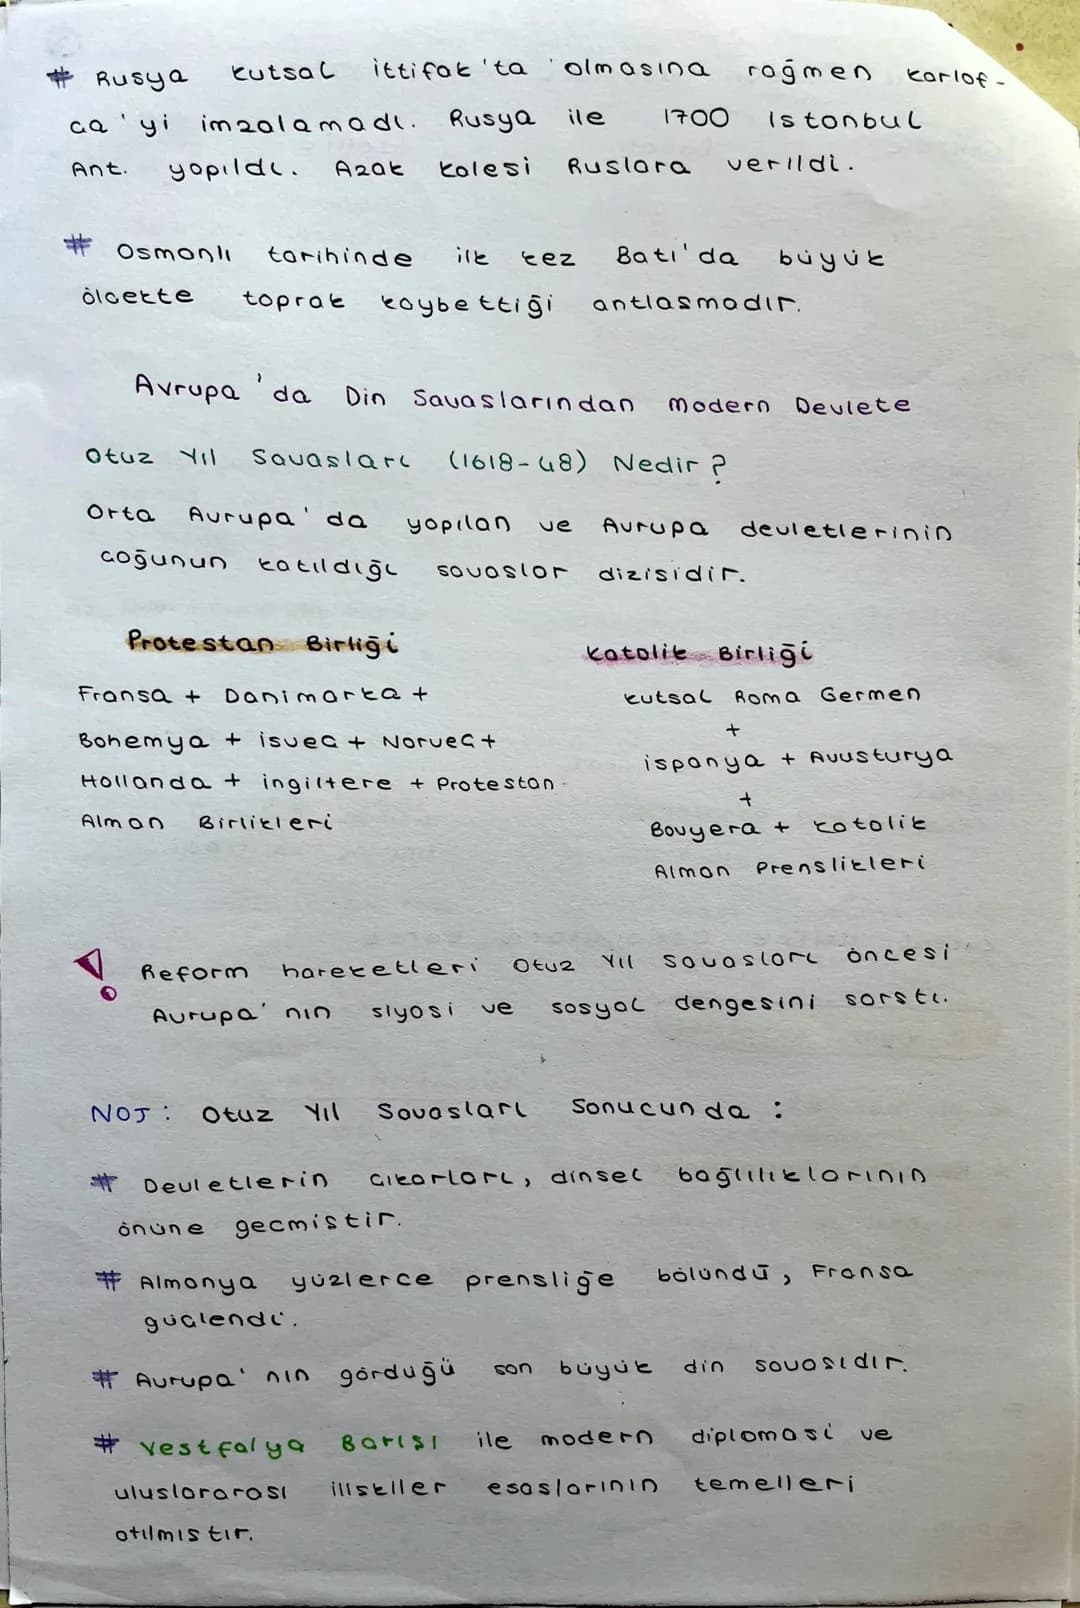 # Rusya kutsal ittifak'ta olmasına rağmen Karlof-
ça'yı imzalamadı. Rusya ile 1700 İstanbul
Ant. yapıldı. Azak kalesi Ruslara verildi.
# Osmanlı tarihinde ilk kez Batı'da büyük
ölçekte toprak kaybettiği antlaşmadır.
Avrupa'da Din Savaşlarından Modern Devlete
Otuz Yıl Savaşları (1618-48) Nedir?
Orta Avrupa'da yapılan ve Avrupa devletlerinin
çoğunun katıldığı savaşlar dizisidir.
Protestan Birliği
Fransa + Danimarka +
Bohemya + isveç + Norveç +
Hollanda + ingiltere + Protestan
Alman Birlikleri
Katolik Birliği
kutsal Roma Germen
+
ispanya + Avusturya
+
Bavyera + katolik
Alman Prenslikleri
! Reform hareketleri Otuz Yıl Savaşları öncesi
Avrupa'nın siyasi ve sosyal dengesini sarstı.
NOT: Otuz Yıl Savaşları Sonucunda :
# Devletlerin çıkarları, dinsel bağlılıklarının
önüne geçmiştir.
# Almanya yüzlerce prensliğe bölündü, Fransa
güçlendi.
# Avrupa'nın gördüğü son büyük din savaşıdır.
# Vestfalya Barışı ile modern diplomasi ve
uluslararası ilişkiler esaslarının temelleri
atılmıştır.